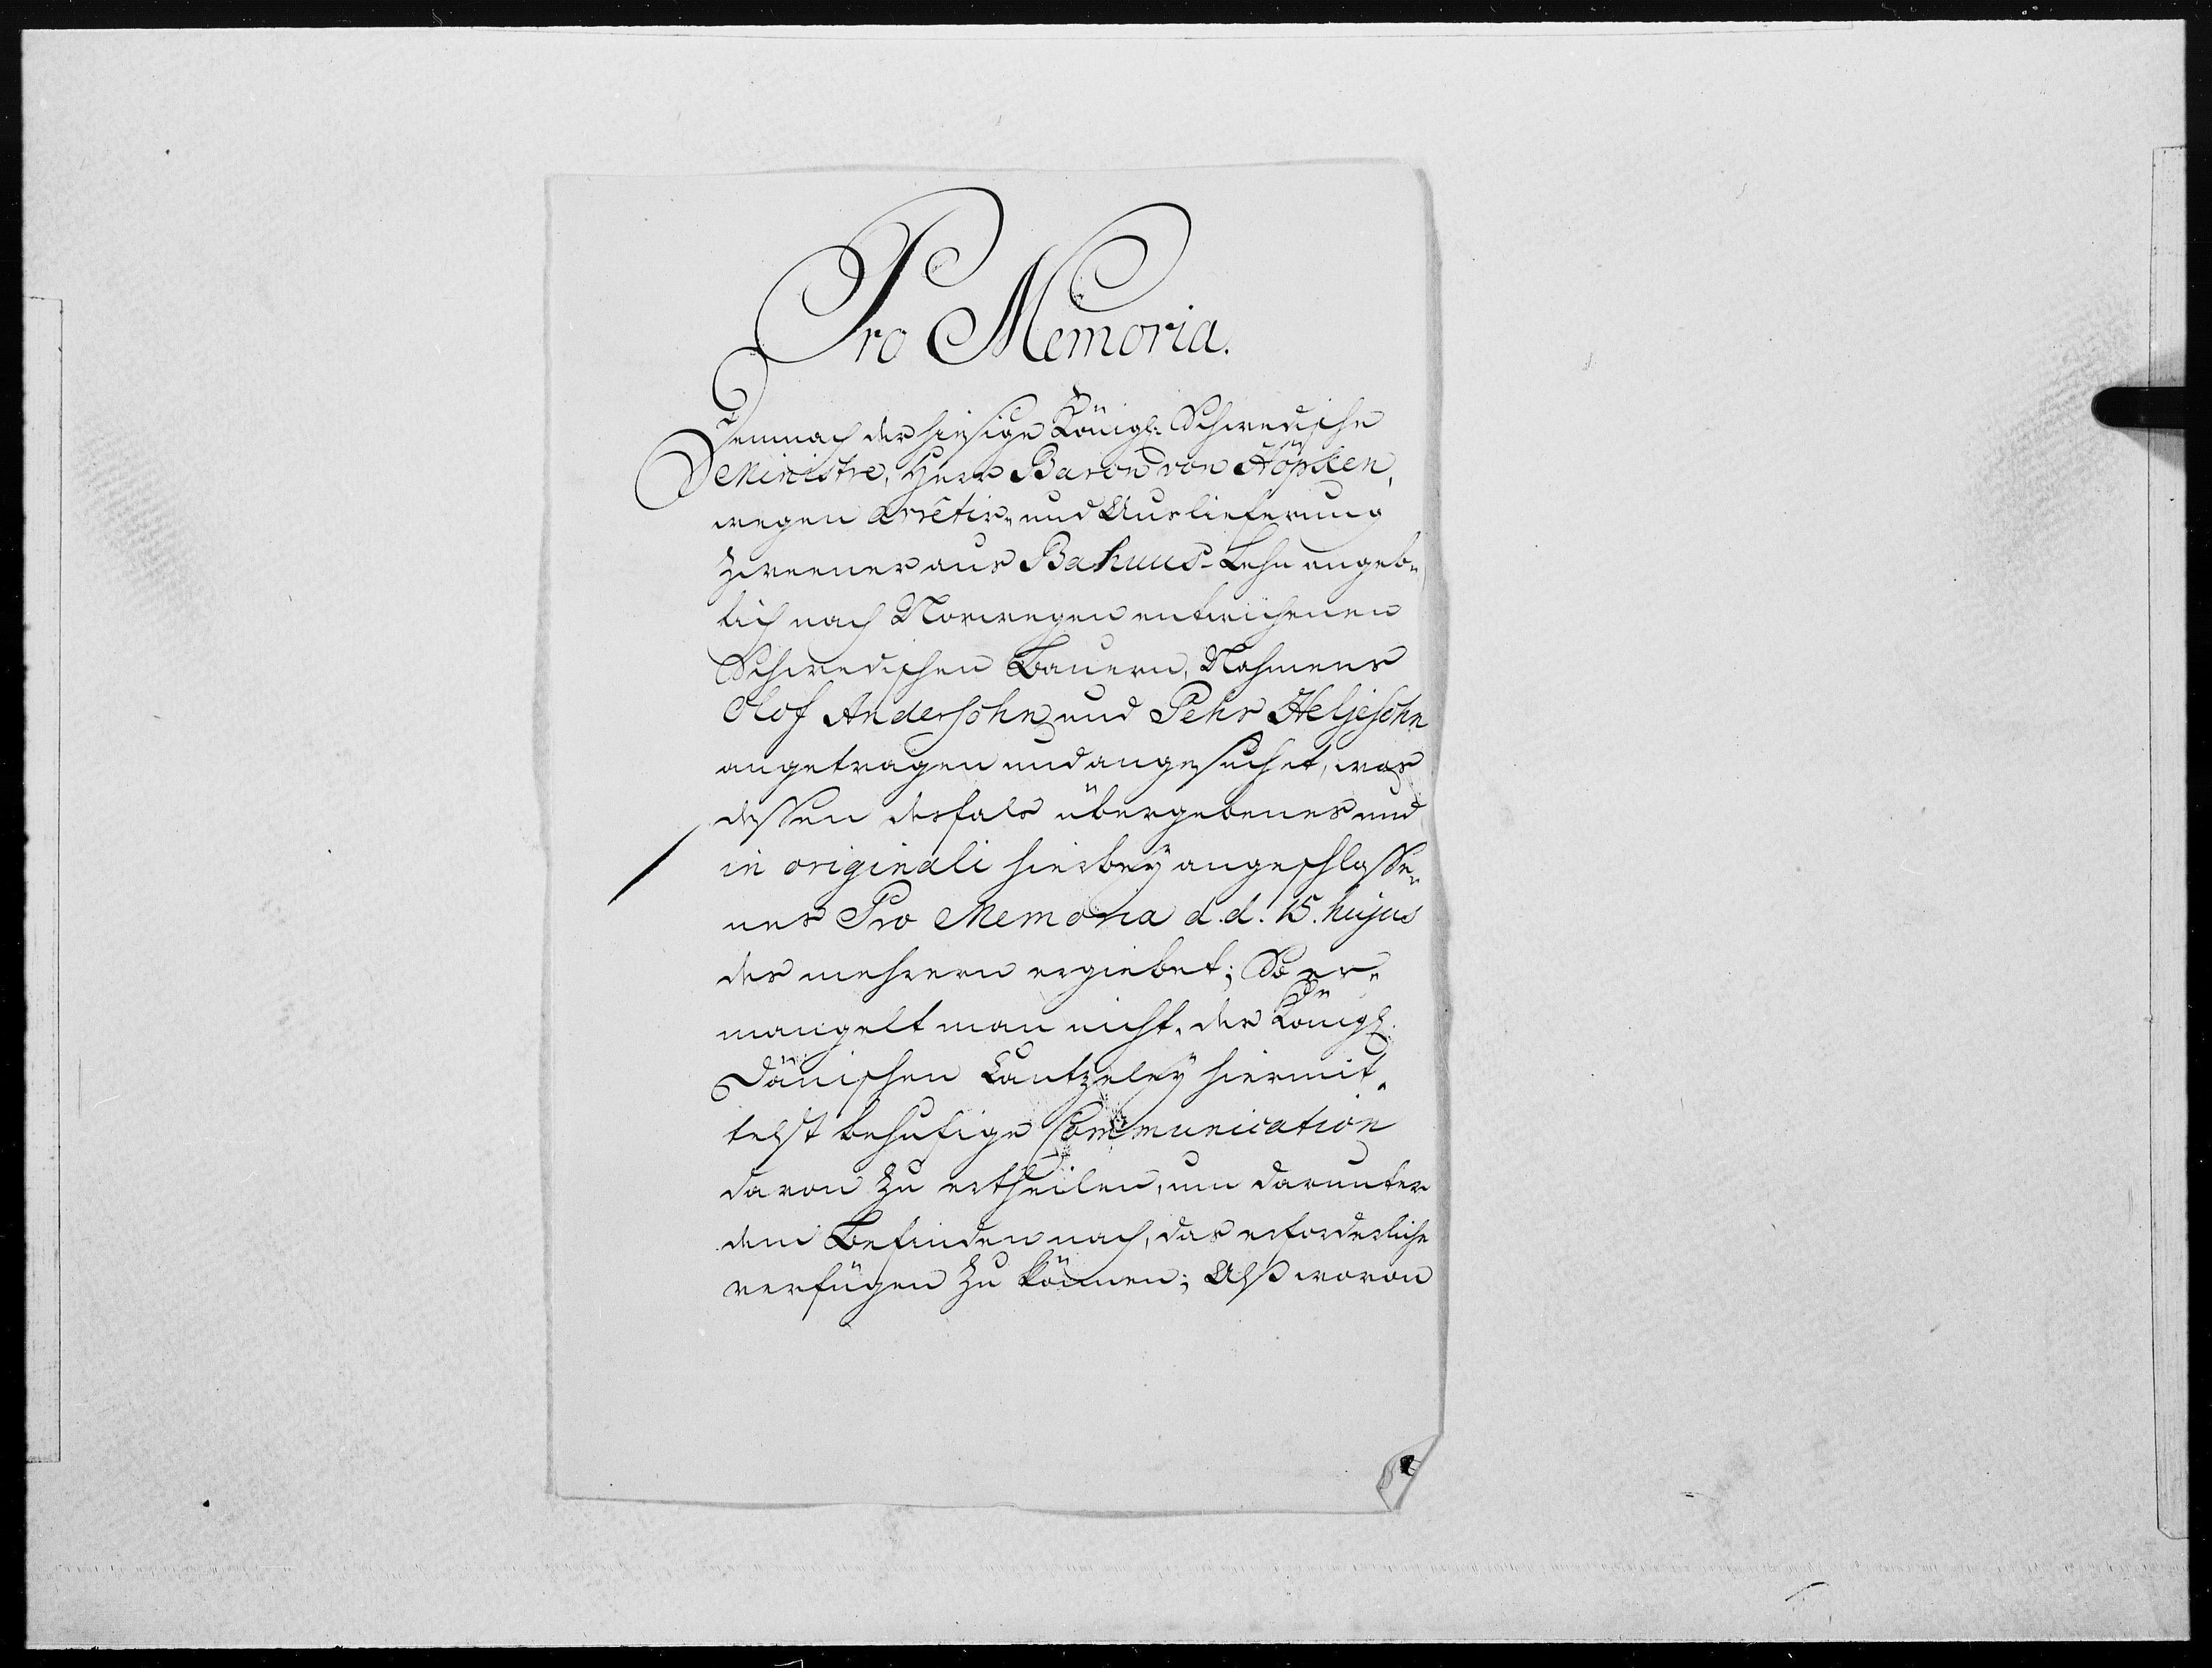 Pro Memoria.
Demnach der hiesige Königl: Schwedische
Ministre, Herr Baron von Höpken,
wegen arrêtir- und Auslieferung
zweener aus Bahuus-Lehn angeb-
lich nach Norwegen entwichenen
Schwedischen Bauern, Nahmens
Olof Andersohn und Pehr Heljesohn
angetragen und angesuchet, was
dessen desfals übergebenes und
in originali hierbey angeschlosse-
nes Pro Memoria d. d. 15. hujus
des mehrern ergiebet; So er-
mangelt man nicht, der Königl.
Dänischen Cantzeley hiermit-
telst behufige Communication
davon zu ertheilen, um darunter
dem Befinden nach, das erforderliche
verfügen zu können; Alß wovon